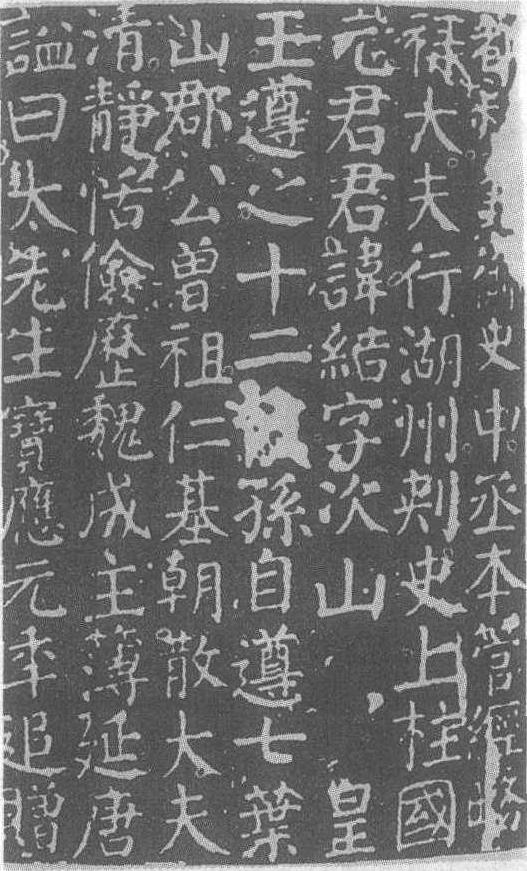 都御史中丞本管經略
祿大夫行湖州刾史上柱國
元君君諱結字次山 皇
王遵之十二孫自遵七葉
山郡公曾祖仁基朝散大夫
清靜恬儉歷魏成主簿延唐
謚曰太先生寶應元年追贈